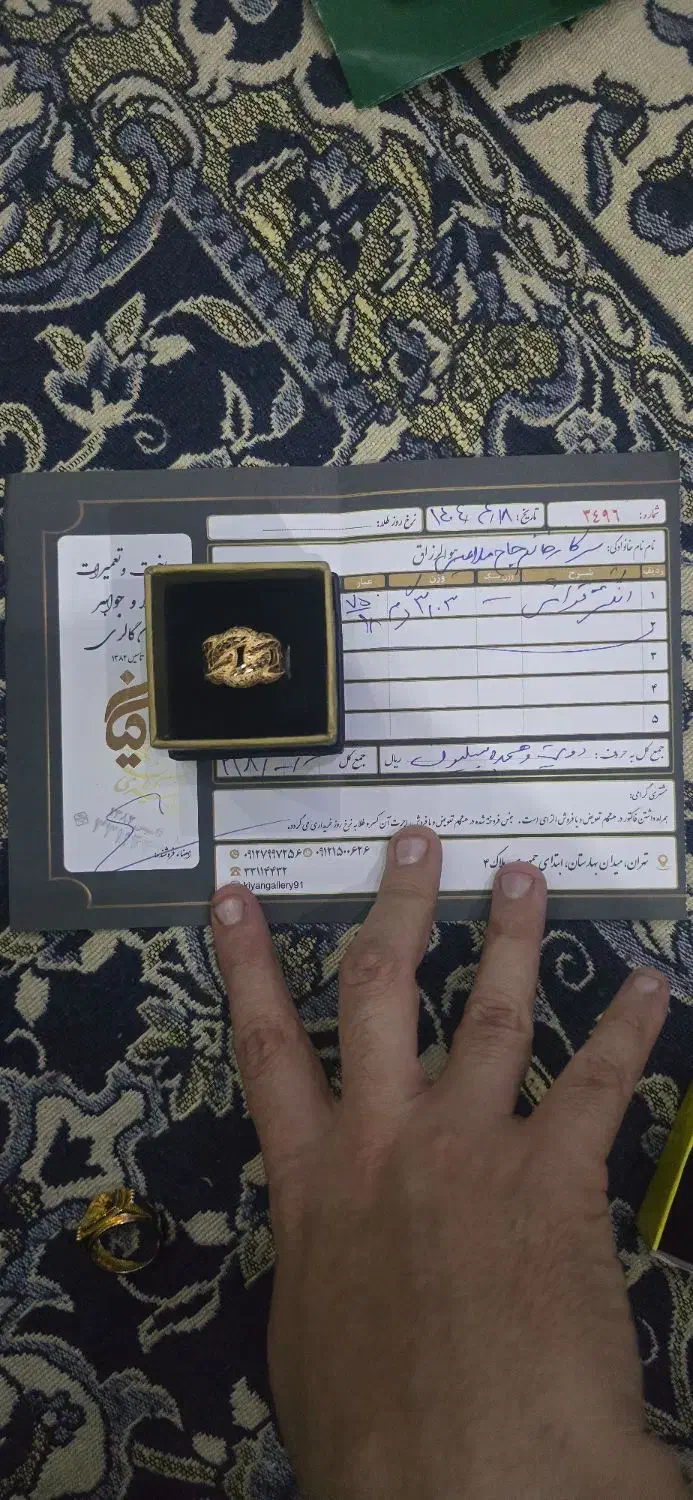 شماره: ۳۴۹۶
تاریخ: ۱۴۰۴/۴/۱۸
نرخ روز طلا:
نام نام خانوادگی: سرکار خانم حاج
ردیف شرح وزن سنگ وزن عیار
۱ انگشتر — ۳٫۰۳ گرم ۷۵۰/۱۸
۲
۳
۴
۵
جمع کل به حروف: دویست و هجده میلیون ریال جمع کل
مشتری گرامی:
همراه داشتن فاکتور در هنگام تعویض و یا فروش الزامی است. جنس فروخته شده در هنگام تعویض و یا فروش اجرت آن کسر و طلا به نرخ روز خریداری می گردد.
تهران، میدان بهارستان، ابتدای پلاک ۴
۰۹۱۲۷۹۹۷۲۵۶ ۰۹۱۲۱۵۰۰۶۲۶
۳۳۱۱۴۴۳۲
kiyangallery91
ساخت و تعمیرات
جواهر
گالری
تاسیس ۱۳۸۲
کیان
امضاء فروشنده: